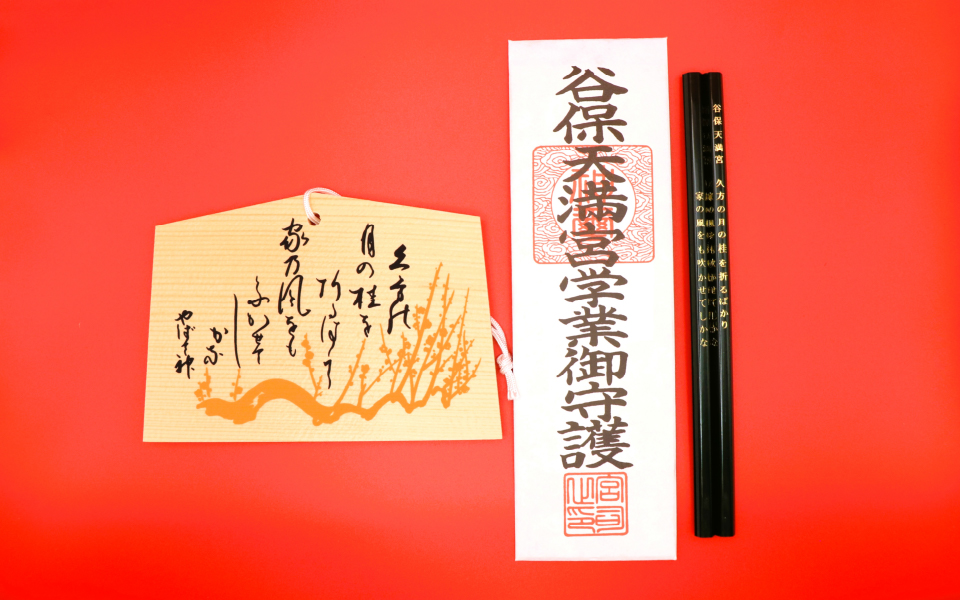 久方の
月の桂を
家乃風をも
ふかせて
し
かな
やぼ天神
谷保天満宮学業御守護
宮司之印
谷保天満宮 久方の月の桂を折るばかり
家の風をも吹かせてしがな